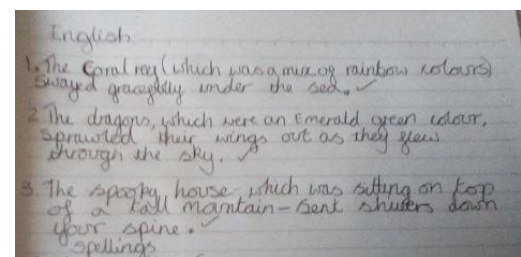 English
1. The Coral reef (which was a mix of rainbow colours)
Swayed gracefully under the sea.
2. The dragons, which were an Emerald green colour,
sprawled their wings out as they flew
through the sky.
3. The spoopy house - which was sitting on top
of a tall mantain - sent shuters down
your spine.
spellings